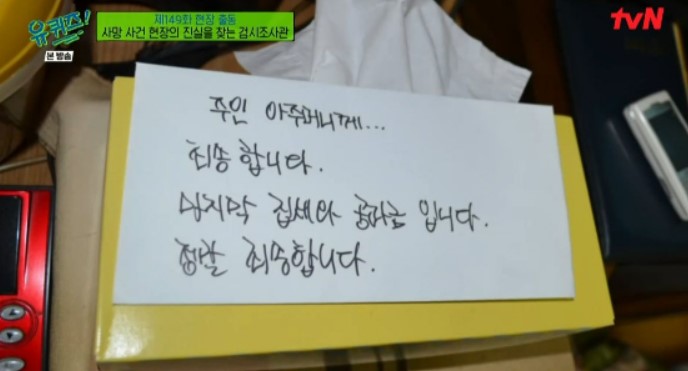 유퀴즈!
본 방송
제149화 현장 출동
사망 사건 현장의 진실을 찾는 검시조사관
tvN
주인 아주머니께...
죄송합니다.
마지막 집세와 공과금 입니다.
정말 죄송합니다.